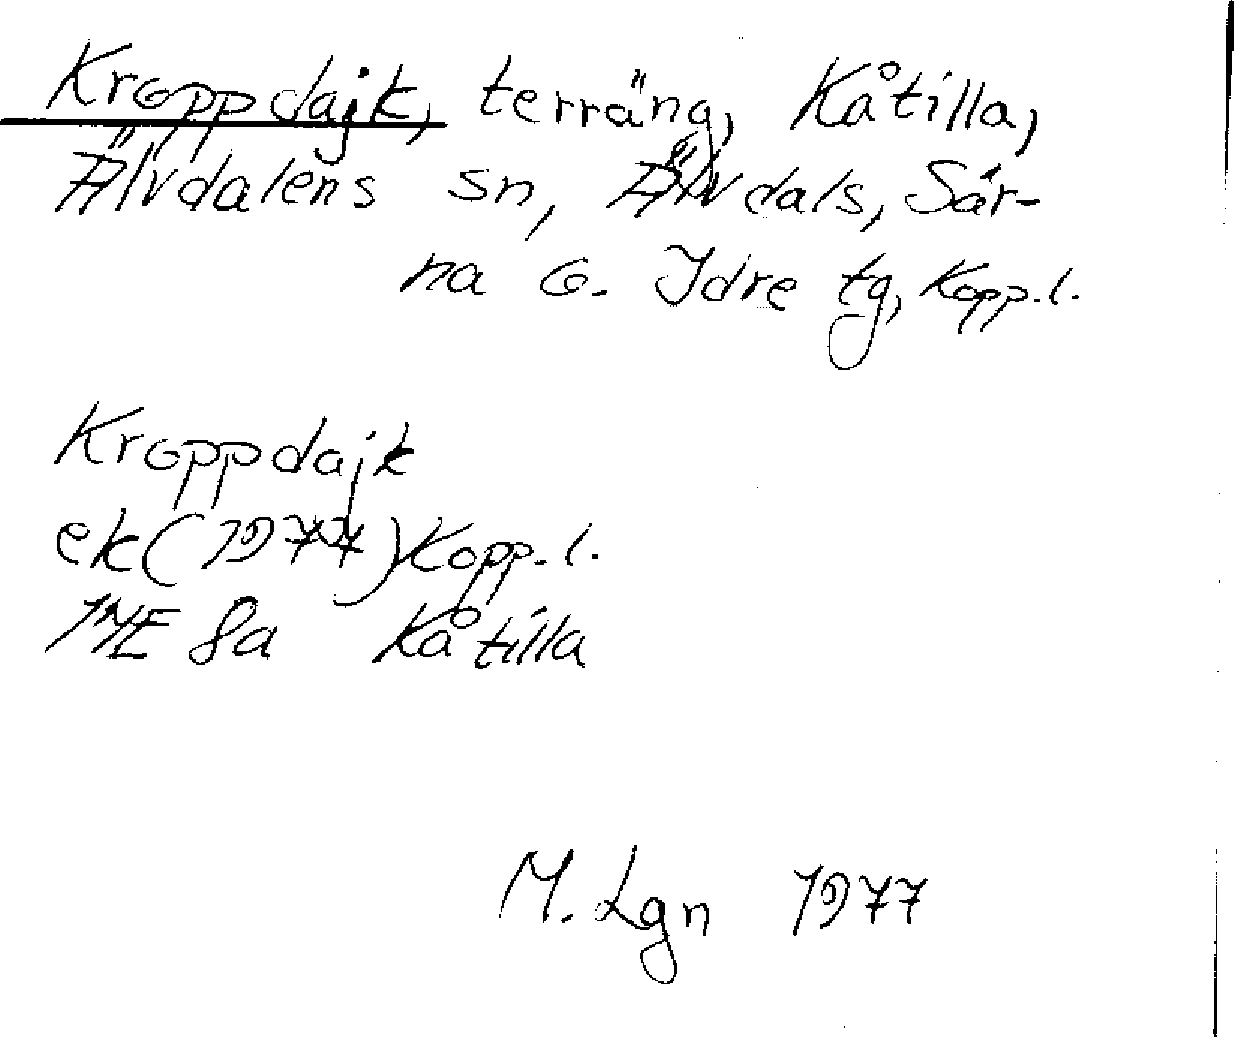 Kroppdajk, terräng, Kåtilla,
Älvdalens sn, Älvdals, Sär-
na o. Idre tg, Kopp.l.
Kroppdajk
ek(1977)Kopp.l.
14E 8a Kåtilla
M. Lgn 1977